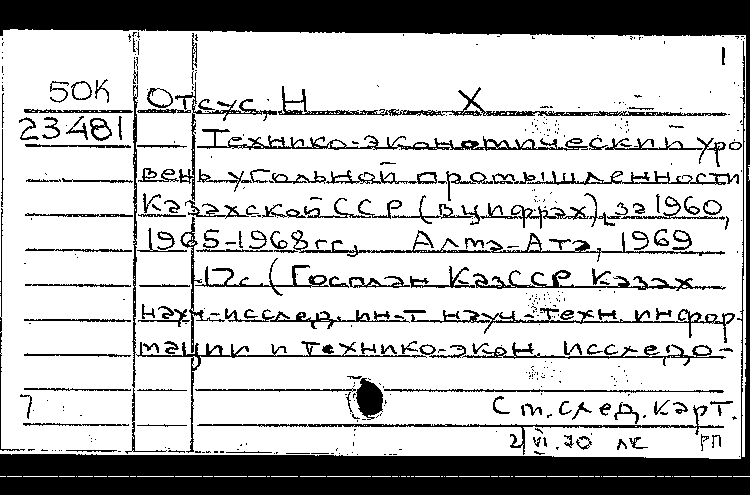 1
50К Отсус, Н Х
23481 Технико-экономический уро
вень угольной промышленности
Казахской ССР (в цифрах), за 1960,
1965-1968 гг, Алма-Ата, 1969
17с. (Госплан КазССР Казах
науч-исслед. ин-т науч-техн. инфор-
мации и технико-экон. исследо-
7 См. след. карт.
2/VI.70 РП